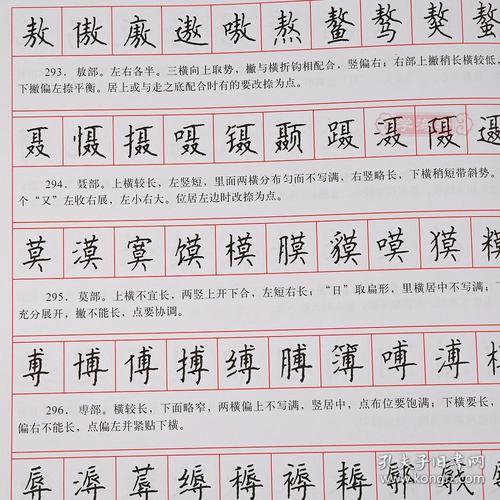 敖 傲 廒 遨 嗷 熬 鳌 骜 獒 螯
293．敖部。左右各半。三横向上取势，撇与横折钩相配合，竖偏右；右部上撇稍长横较低，
下撇偏左捺平衡。居上或与走之底配合时有的要改捺为点。
聂 慑 摄 嗫 镊 颞 蹑 滠
294．聂部。上横较长，左竖短，里面两横分布匀而不写满，右竖略长，下横稍短带斜势。
个“又”左收右展，左小右大。位居左边时改捺为点。
莫 漠 寞 馍 模 膜 貘 嘆 獏 糢
295．莫部。上横不宜长，两竖上开下合，左短右长；“日”取扁形，里横居中不写满；下
充分展开，撇不能长，点要协调。
尃 博 傅 搏 缚 膊 簿 嚩 溥
296．尃部。横较长，下面略窄，两横偏上不写满，竖居中，点布位要饱满；下横要长，
偏右不能长，点偏左并紧贴下横。
辱 溽 蓐 缛
孔夫子旧书网
www.kongfz.com